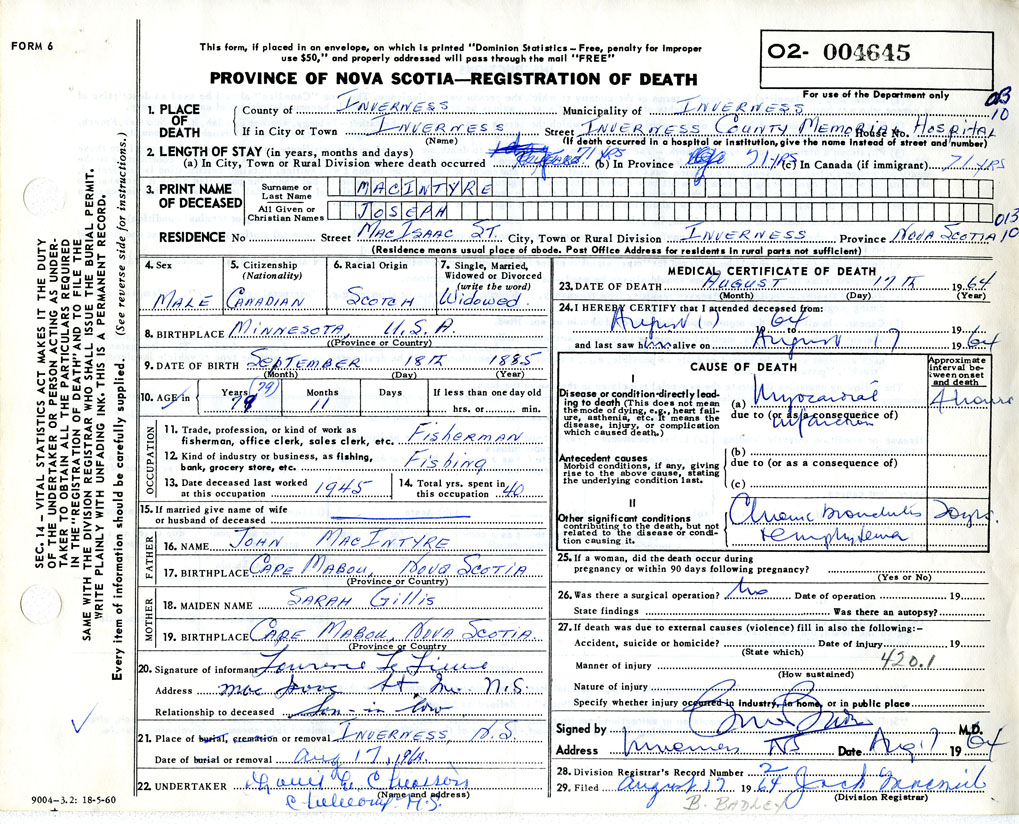 FORM 6
This form, if placed in an envelope, on which is printed "Dominion Statistics – Free, penalty for improper
use $50," and properly addressed will pass through the mail "FREE"
PROVINCE OF NOVA SCOTIA—REGISTRATION OF DEATH
O2- 004645
For use of the Department only
1. PLACE OF DEATH
County of INVERNESS Municipality of INVERNESS
If in City or Town INVERNESS Street INVERNESS COUNTY MEMORIAL House No. HOSPITAL
(Name) (If death occurred in a hospital or institution, give the name instead of street and number)
10
2. LENGTH OF STAY (in years, months and days)
(a) In City, Town or Rural Division where death occurred 71 YRS (b) In Province 71 YRS (c) In Canada (if immigrant) 71 YRS
3. PRINT NAME OF DECEASED
Surname or Last Name MACINTYRE
All Given or Christian Names JOSEPH
013
10
RESIDENCE No. Street MACISAAC ST. City, Town or Rural Division INVERNESS Province NOVA SCOTIA
(Residence means usual place of abode. Post Office Address for residents in rural parts not sufficient)
4. Sex MALE
5. Citizenship (Nationality) CANADIAN
6. Racial Origin SCOTCH
7. Single, Married, Widowed or Divorced (write the word) Widowed
8. BIRTHPLACE MINNESOTA, U.S.A.
(Province or Country)
9. DATE OF BIRTH SEPTEMBER 18th 1885
(Month) (Day) (Year)
10. AGE in Years 79 (79) Months 11 Days If less than one day old
hrs. or min.
OCCUPATION
11. Trade, profession, or kind of work as
fisherman, office clerk, sales clerk, etc. FISHERMAN
12. Kind of industry or business, as fishing,
bank, grocery store, etc. FISHING
13. Date deceased last worked
at this occupation 1945
14. Total yrs. spent in
this occupation 40
15. If married give name of wife
or husband of deceased
FATHER
16. NAME JOHN MACINTYRE
17. BIRTHPLACE CAPE MABOU, NOVA SCOTIA
(Province or Country)
MOTHER
18. MAIDEN NAME SARAH GILLIS
19. BIRTHPLACE CAPE MABOU, NOVA SCOTIA
(Province or Country)
20. Signature of informant
Address St. N.S.
Relationship to deceased Son-in law
21. Place of burial, cremation or removal INVERNESS, N.S.
Date of burial or removal Aug 17, 1964
22. UNDERTAKER
(Name and address)
N.S.
9004–3.2: 18-5-60
SEC. 14 – VITAL STATISTICS ACT MAKES IT THE DUTY
OF THE UNDERTAKER OR PERSON ACTING AS UNDER-
TAKER TO OBTAIN ALL THE PARTICULARS REQUIRED
IN THE "REGISTRATION OF DEATH" AND TO FILE THE
SAME WITH THE DIVISION REGISTRAR WHO SHALL ISSUE THE BURIAL PERMIT.
WRITE PLAINLY WITH UNFADING INK. THIS IS A PERMANENT RECORD.
Every item of information should be carefully supplied. (See reverse side for instructions.)
MEDICAL CERTIFICATE OF DEATH
23. DATE OF DEATH AUGUST 17th 1964
(Month) (Day) (Year)
24. I HEREBY CERTIFY that I attended deceased from:
August 17 64 19 to 19
and last saw him alive on August 17 1964
CAUSE OF DEATH
Approximate interval between onset and death
I
Disease or condition directly leading
to death (This does not mean
the mode of dying, e.g., heart failure,
asthenia, etc. It means the
disease, injury, or complication
which caused death.)
(a) Myocardial 4 hours
due to (or as a consequence of)
infarction
Antecedent causes
Morbid conditions, if any, giving
rise to the above cause, stating
the underlying condition last.
(b)
due to (or as a consequence of)
(c)
II
Other significant conditions
contributing to the death, but not
related to the disease or condition
causing it.
Chronic Bronchitis
emphysema
25. If a woman, did the death occur during
pregnancy or within 90 days following pregnancy?
(Yes or No)
26. Was there a surgical operation? No Date of operation 19
State findings Was there an autopsy?
27. If death was due to external causes (violence) fill in also the following:–
Accident, suicide or homicide? Date of injury 19
(State which)
420.1
Manner of injury
(How sustained)
Nature of injury
Specify whether injury occurred in industry, in home, or in public place
Signed by M.D.
Address Inverness NS Date Aug 17 1964
28. Division Registrar's Record Number 2
29. Filed August 17 1964 Jack
(Division Registrar)
B. BADLEY